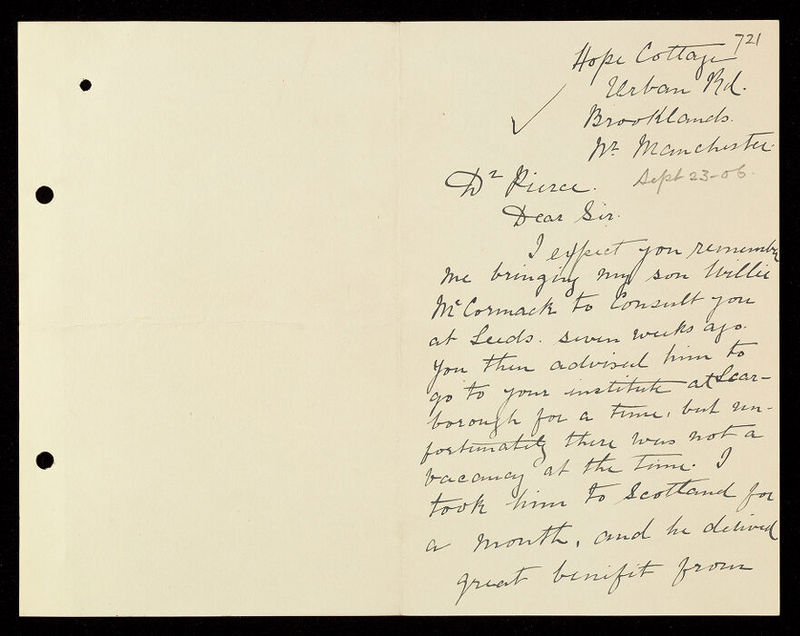 721
Hope Cottage
Urban Rd.
Brooklands.
Nr. Manchester.
Sept 23-06.
Dr Pierce.
Dear Sir.
I expect you remember
me bringing my son Willie
McCormack to Consult you
at Leeds. seven weeks ago.
You then advised him to
go to your institute at Scar-
borough for a time, but un-
fortunately there was not a
vacancy at the time. I
took him to Scotland for
a month, and he derived
great benifit from